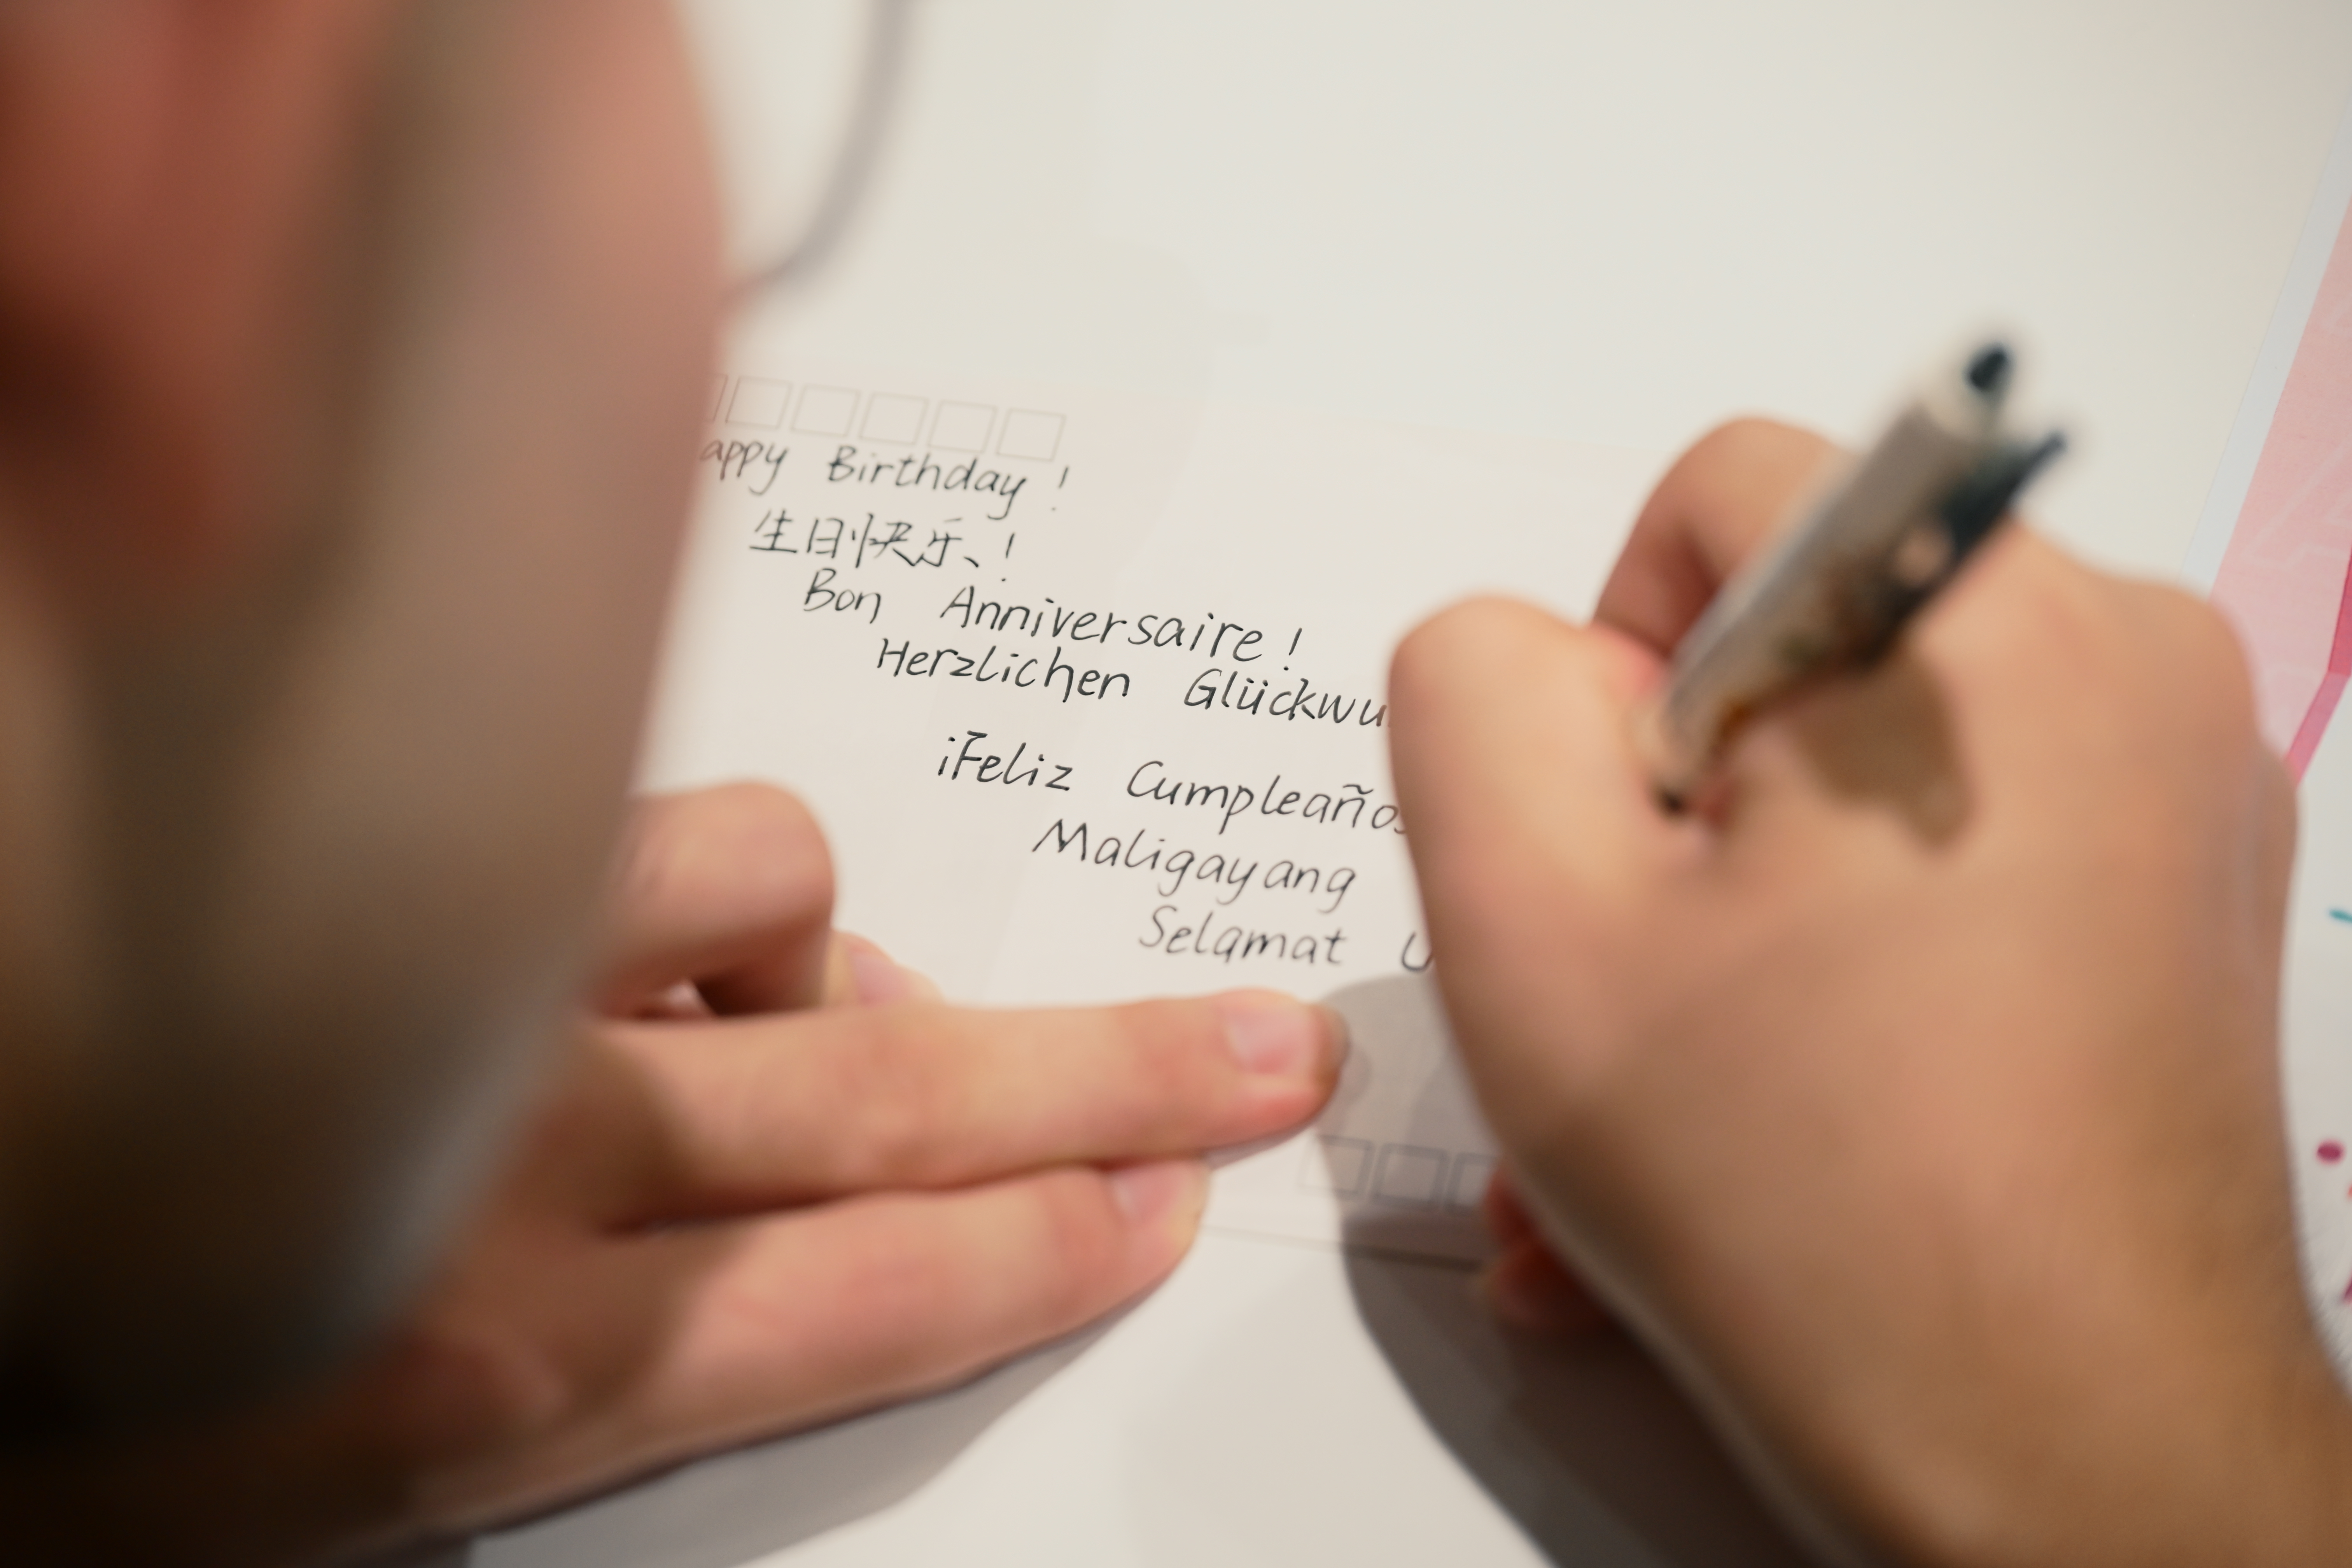 appy Birthday !
生日快乐!
Bon Anniversaire !
Herzlichen Glückwu
¡Feliz Cumpleaños
Maligayang
Selamat U